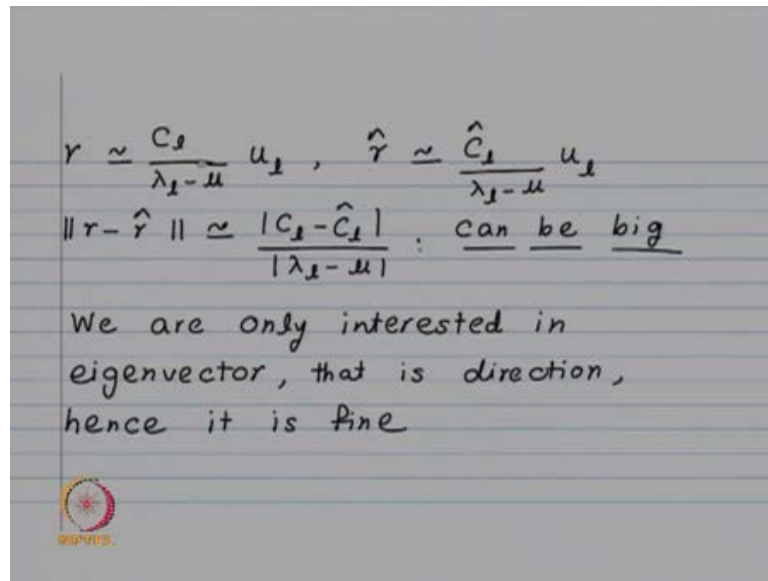 r ≃ C_l / (λ_l - μ) u_l , r̂ ≃ Ĉ_l / (λ_l - μ) u_l
‖r - r̂‖ ≃ |C_l - Ĉ_l| / |λ_l - μ| : can be big
We are only interested in
eigenvector, that is direction,
hence it is fine